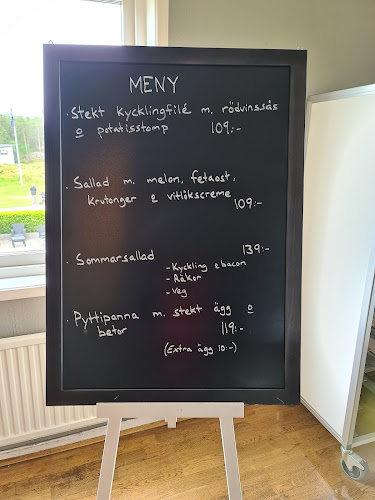 MENY
· Stekt kycklingfilé m. rödvinssås
o potatisstomp 109:-
· Sallad m. melon, fetaost,
krutonger o vitlökscreme
109:-
· Sommarsallad 139:-
- Kyckling o bacon
- Räkor
- Veg
· Pyttipanna m. stekt ägg o
betor 119:-
(Extra ägg 10:-)